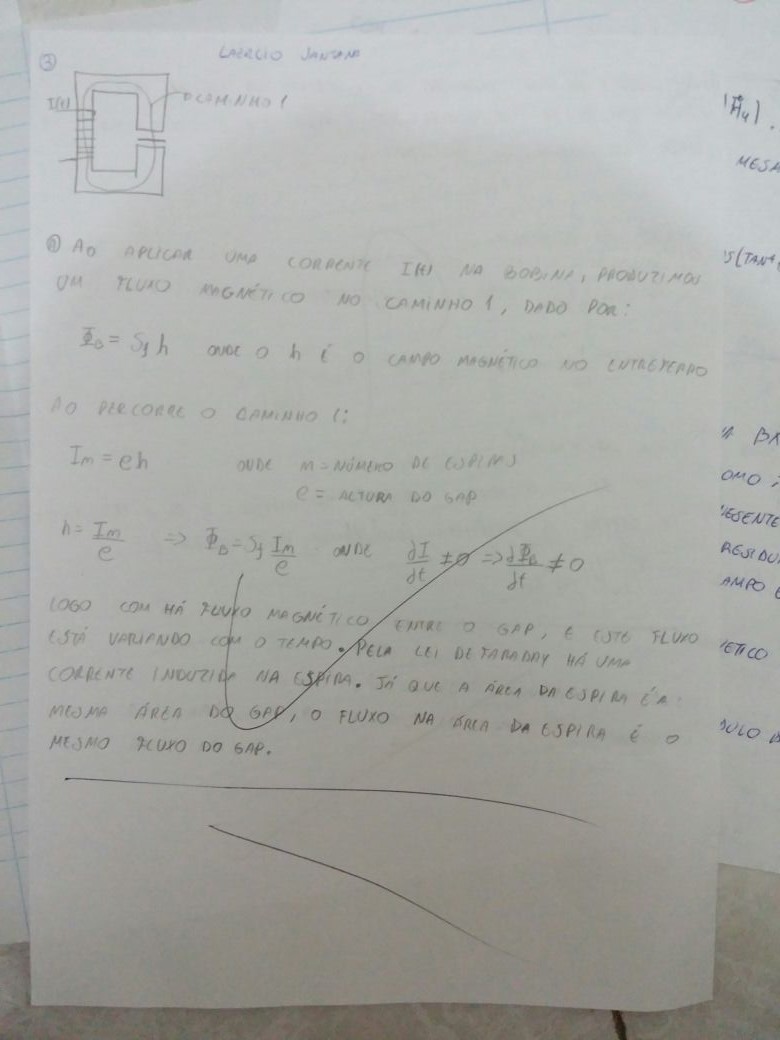 ③ LAERCIO SANTANA
I(t) CAMINHO 1
① AO APLICAR UMA CORRENTE I(t) NA BOBINA, PRODUZIMOS
UM FLUXO MAGNÉTICO NO CAMINHO 1, DADO POR:
h ONDE O h É O CAMPO MAGNÉTICO NO ENTREFERRO
AO PERCORRE O CAMINHO 1:
Im = eh ONDE m = NÚMERO DE ESPIRAS
e = ALTURA DO GAP
h = Im/e => ONDE dI/dt ≠ 0 =>
LOGO COM HÁ FLUXO MAGNÉTICO ENTRE O GAP, E ESTE FLUXO
ESTÁ VARIANDO COM O TEMPO. PELA LEI DE FARADAY HÁ UMA
CORRENTE INDUZIDA NA ESPIRA. JÁ QUE A ÁREA DA ESPIRA É A
MESMA ÁREA DO GAP, O FLUXO NA ÁREA DA ESPIRA É O
MESMO FLUXO DO GAP.